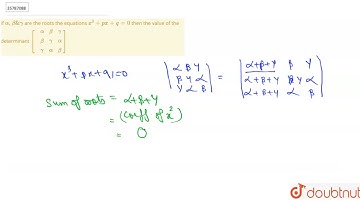 35787088
If α, β & γ are the roots the equations x³ + px + q = 0 then the value of the
determinant | α β γ |
| β γ α |
| γ α β |
x³ + px + q = 0
| α β γ | = | α+β+γ β γ |
| β γ α | | α+β+γ γ α |
| γ α β | | α+β+γ α β |
Sum of roots = α+β+γ
= (coeff of x²)
= 0
doubtnut